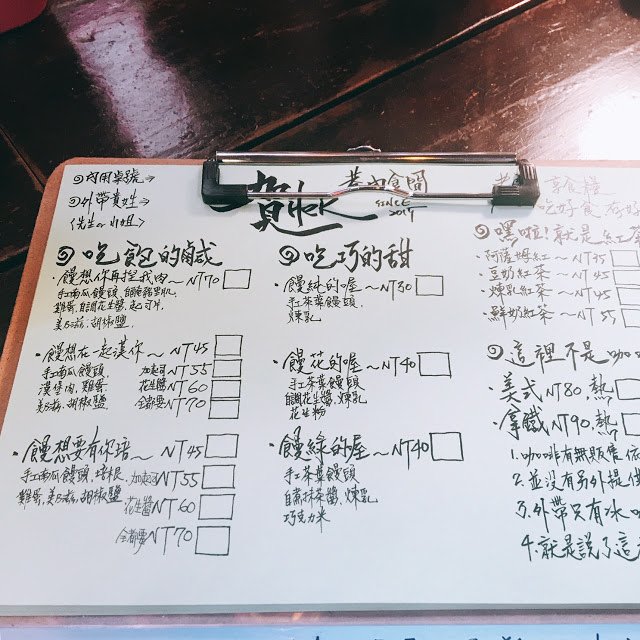 內用桌號→
外帶貴姓→
(先生or小姐)
巷口食圖
SINCE
2014
吃飽的鹹
饅想你再捏我肉～NT70
手工南瓜饅頭、自醃豬里肌、
雞蛋、自調花生醬、起司片、
美乃滋、胡椒鹽
饅想在一起漢你～NT45
手工南瓜饅頭 加起司NT55
漢堡肉、雞蛋 花生醬NT60
美乃滋、胡椒鹽 全都要NT70
饅想要有你培～NT45
手工南瓜饅頭、培根、加起司NT55
雞蛋、美乃滋、胡椒鹽 花生醬NT60
全都要NT70
吃巧的甜
饅綠的喔～NT30
手工茶葉饅頭、
煉乳
饅花的喔～NT40
手工茶葉饅頭
自調花生醬、煉乳
花生粉
饅綠的喔～NT40
手工茶葉饅頭
自煮抹茶醬、煉乳
巧克力米
享食譜
吃好食
嘿啦!就是紅茶
阿薩姆紅～NT35
豆奶紅茶～NT45
煉乳紅茶～NT45
鮮奶紅茶～NT55
這裡不是咖
美式NT80,熱
拿鐵NT90,熱
1.咖啡有無販售依
2.並沒有另外提供
3.外帶只有冰
4.就是說了這